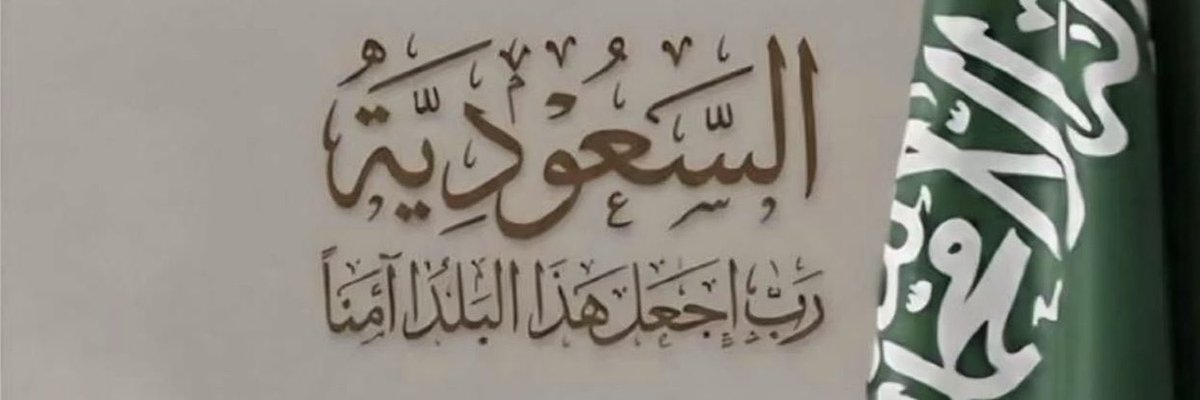 السَّعُوْدِيَّةُ
رَبِّ إِجَعَل هَذَا البَلَدُا آمَنَاً